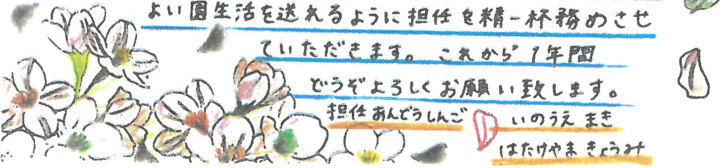 よい園生活を送れるように担任を精一杯務めさせ
ていただきます。これから1年間
どうぞよろしくお願い致します。
担任 あんどうしんご いのうえ まき
はたけやま きょうみ